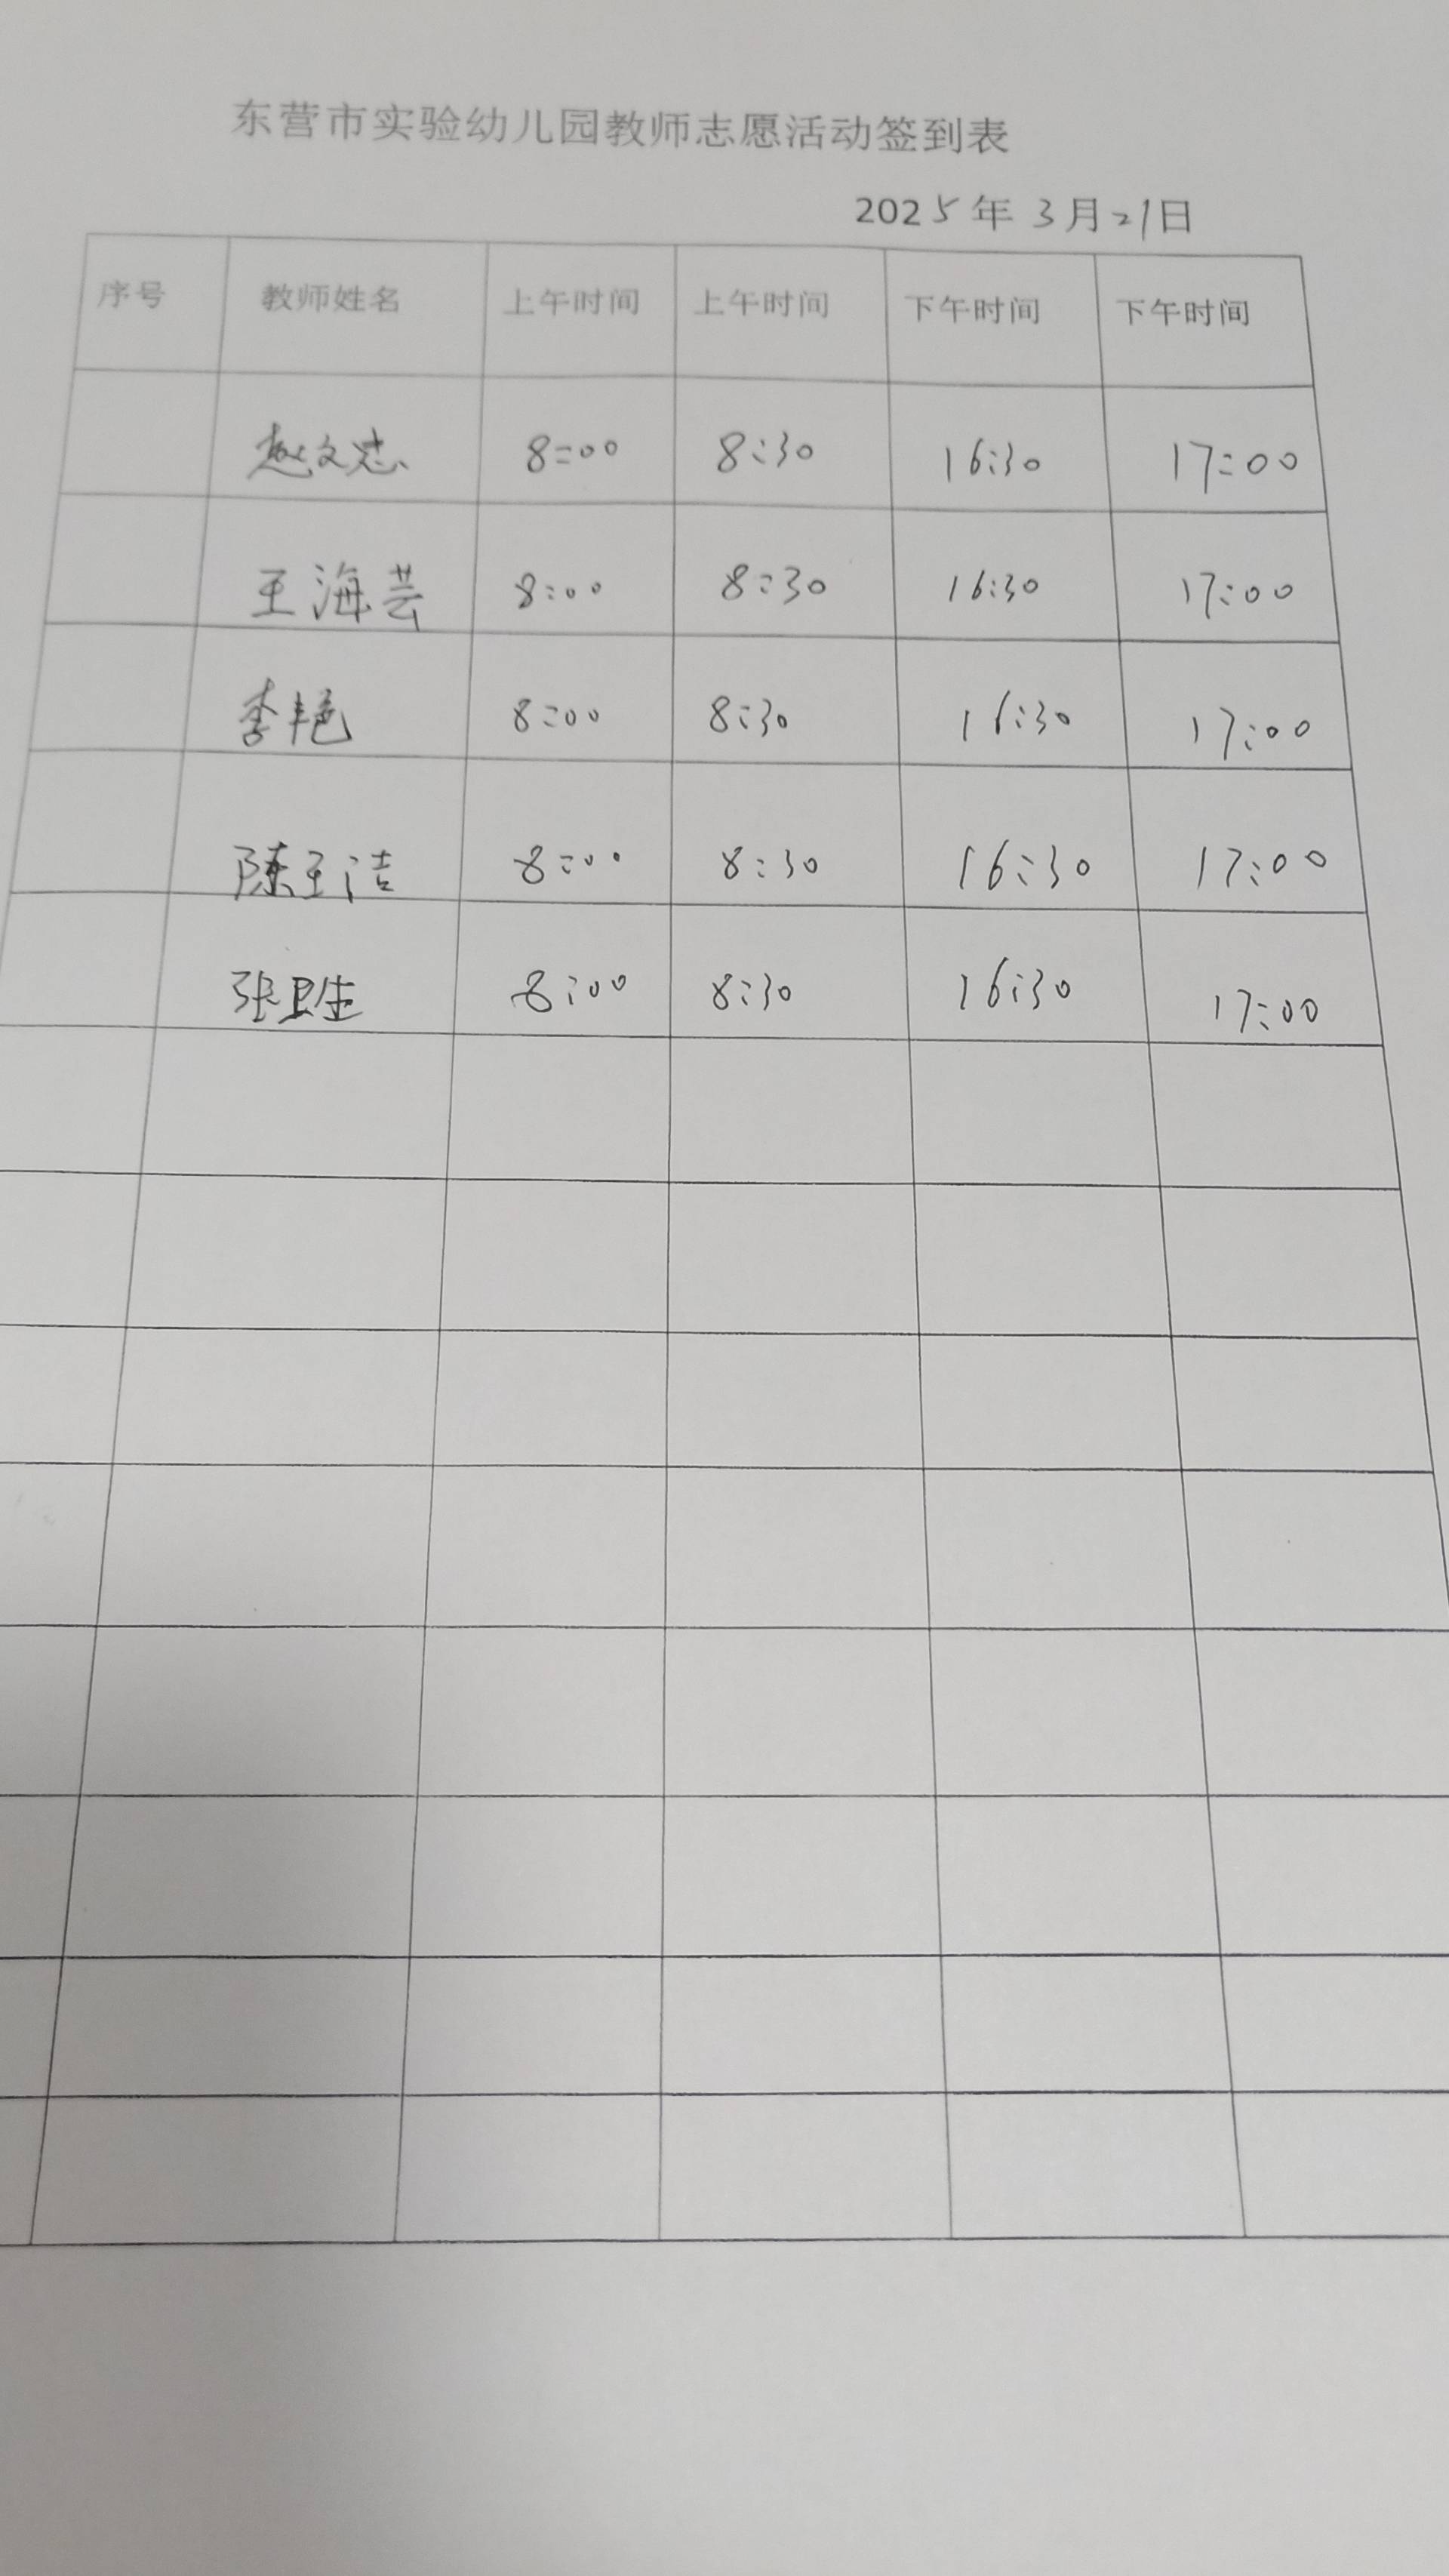 东营市实验幼儿园教师志愿活动签到表
2025年 3月21日
序号 教师姓名 上午时间 上午时间 下午时间 下午时间
赵文忠 8:00 8:30 16:30 17:00
王海芸 8:00 8:30 16:30 17:00
李艳 8:00 8:30 16:30 17:00
陈玉洁 8:00 8:30 16:30 17:00
张卫生 8:00 8:30 16:30 17:00